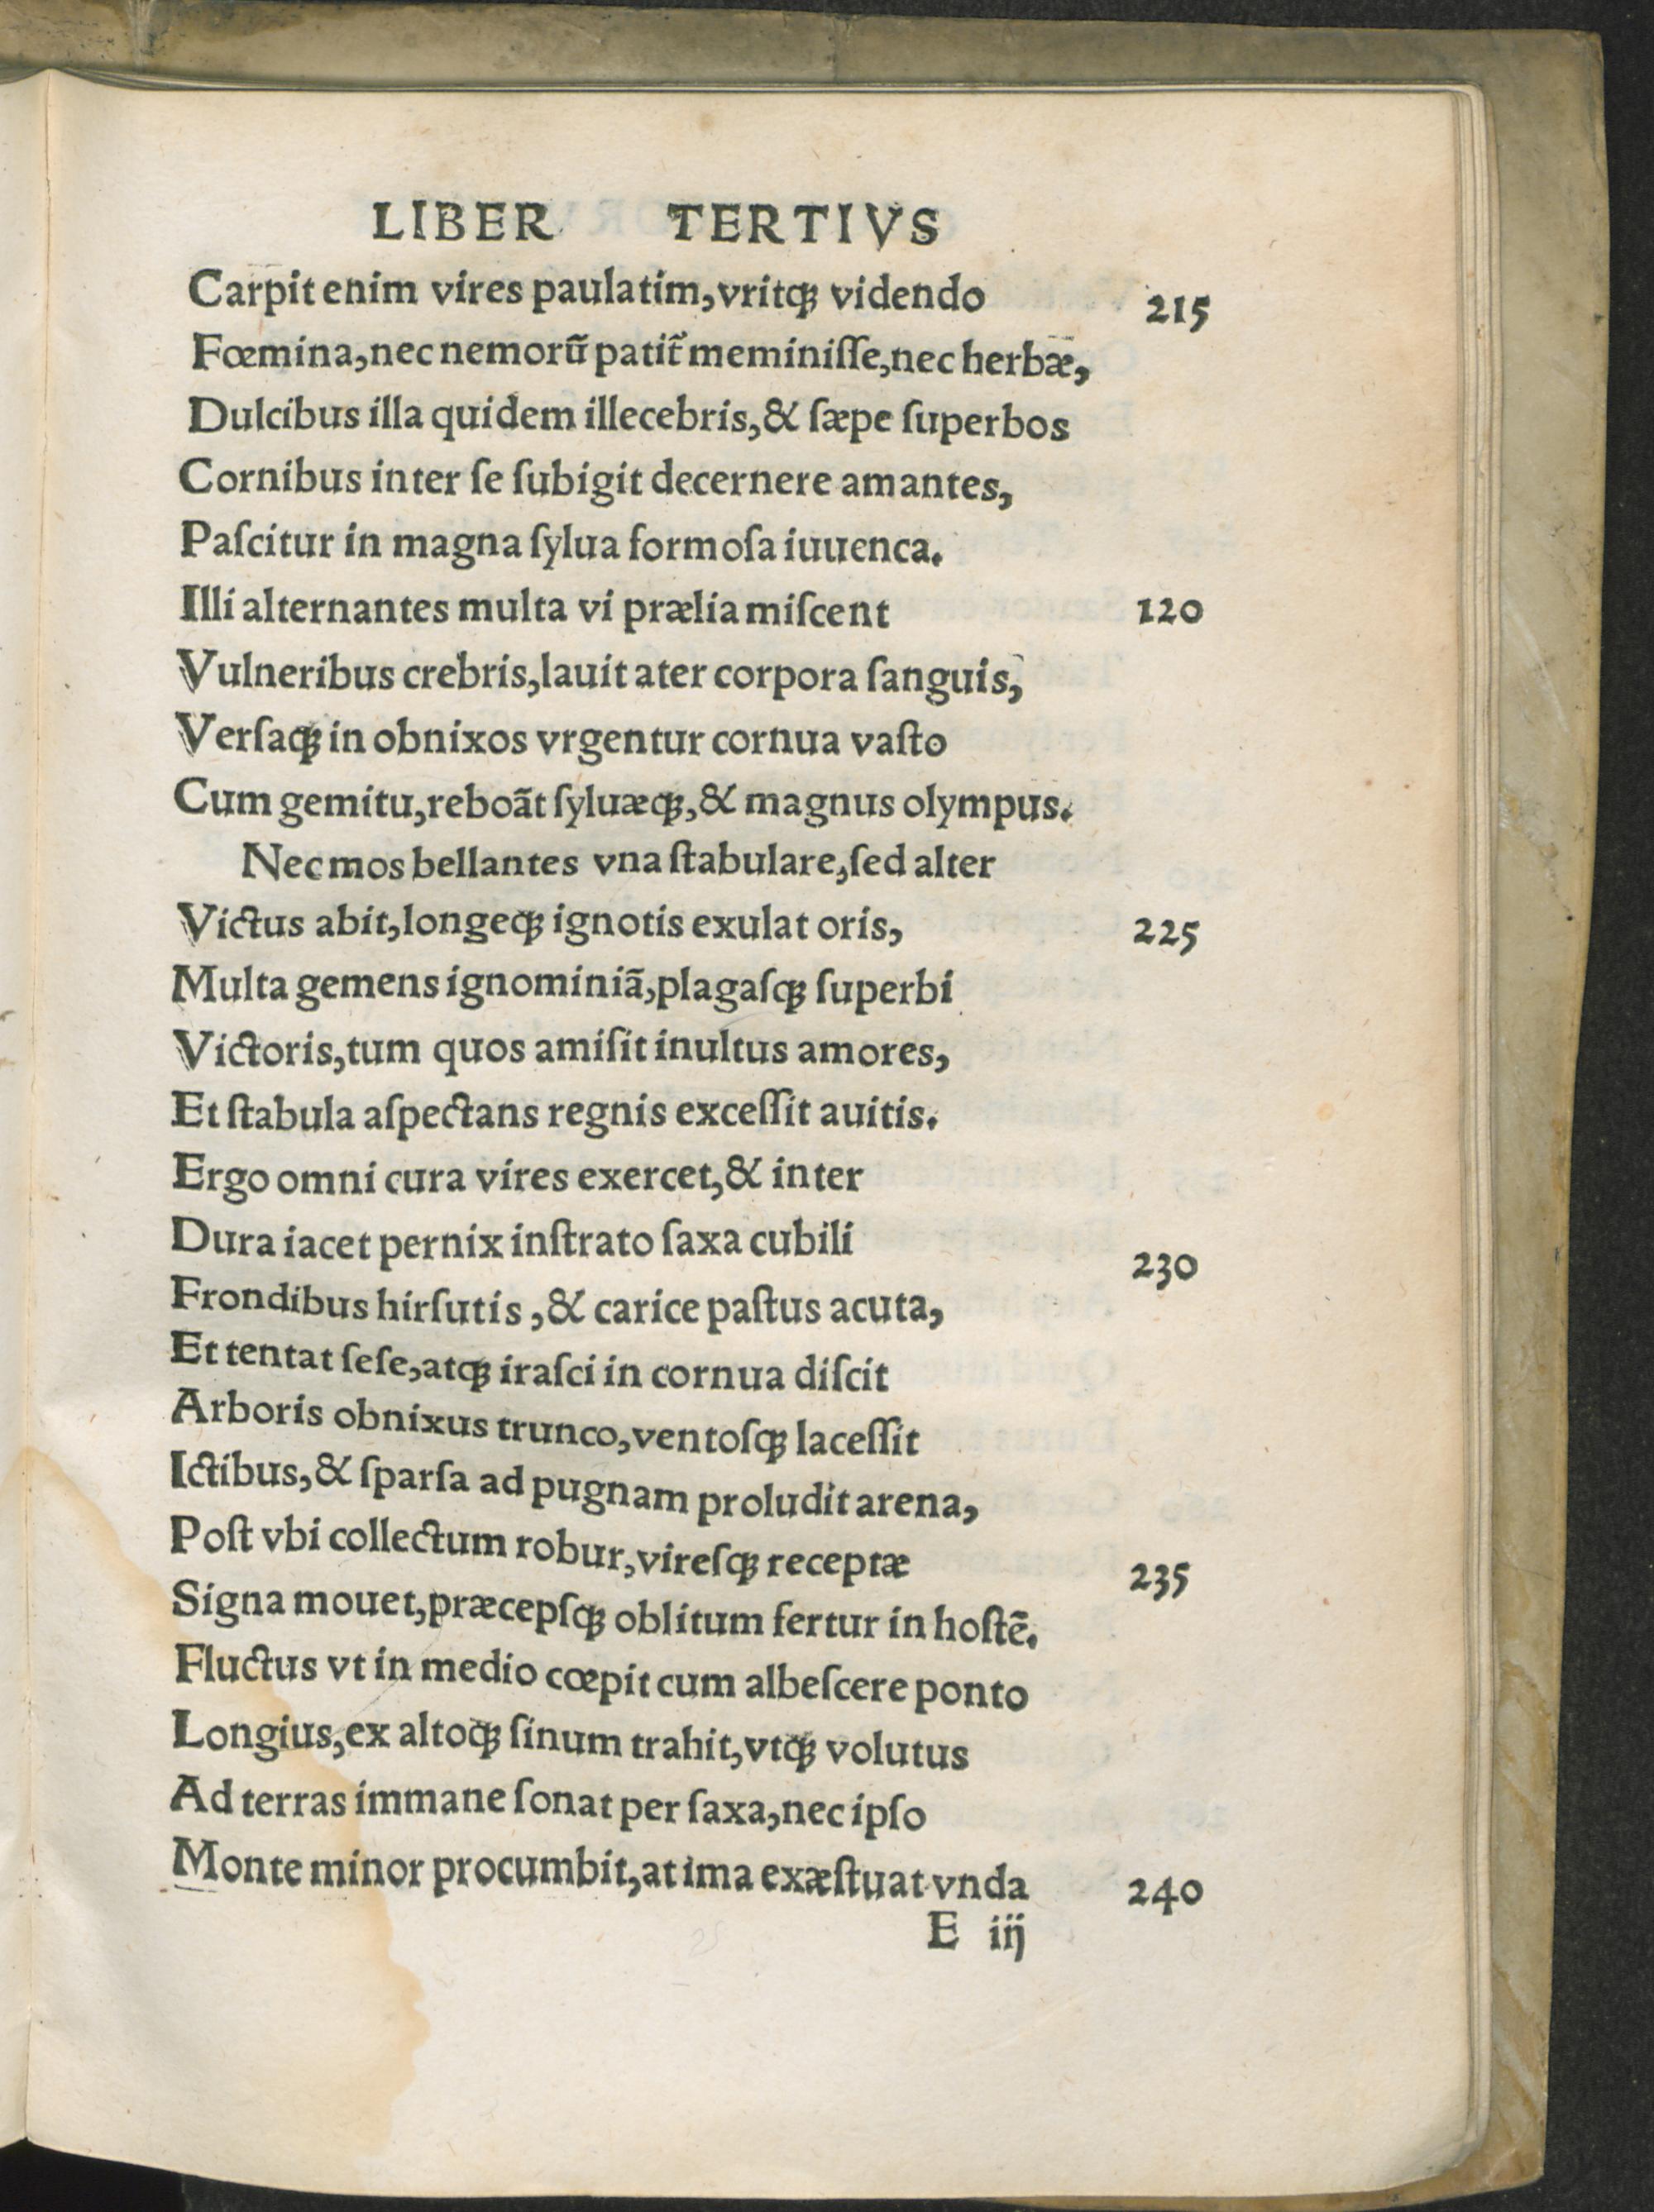 LIBER TERTIVS
Carpit enim vires paulatim, vritqꝫ videndo 215
Fœmina, nec nemorū patit᷑ meminiſſe, nec herbæ,
Dulcibus illa quidem illecebris, & ſæpe ſuperbos
Cornibus inter ſe ſubigit decernere amantes,
Paſcitur in magna ſylua formoſa iuuenca.
Illi alternantes multa vi prælia miſcent 120
Vulneribus crebris, lauit ater corpora ſanguis,
Verſaqꝫ in obnixos vrgentur cornua vaſto
Cum gemitu, reboāt ſyluæqꝫ, & magnus olympus.
Nec mos bellantes vna ſtabulare, ſed alter
Victus abit, longeqꝫ ignotis exulat oris, 225
Multa gemens ignominiā, plagaſqꝫ ſuperbi
Victoris, tum quos amiſit inultus amores,
Et ſtabula aſpectans regnis exceſſit auitis.
Ergo omni cura vires exercet, & inter
Dura iacet pernix inſtrato ſaxa cubili 230
Frondibus hirſutis, & carice paſtus acuta,
Et tentat ſeſe, atqꝫ iraſci in cornua diſcit
Arboris obnixus trunco, ventoſqꝫ laceſſit
Ictibus, & ſparſa ad pugnam proludit arena,
Poſt vbi collectum robur, vireſqꝫ receptæ 235
Signa mouet, præcepſqꝫ oblitum fertur in hoſtē.
Fluctus vt in medio cœpit cum albeſcere ponto
Longius, ex altoqꝫ ſinum trahit, vtqꝫ volutus
Ad terras immane ſonat per ſaxa, nec ipſo
Monte minor procumbit, at ima exæſtuat vnda 240
E iij